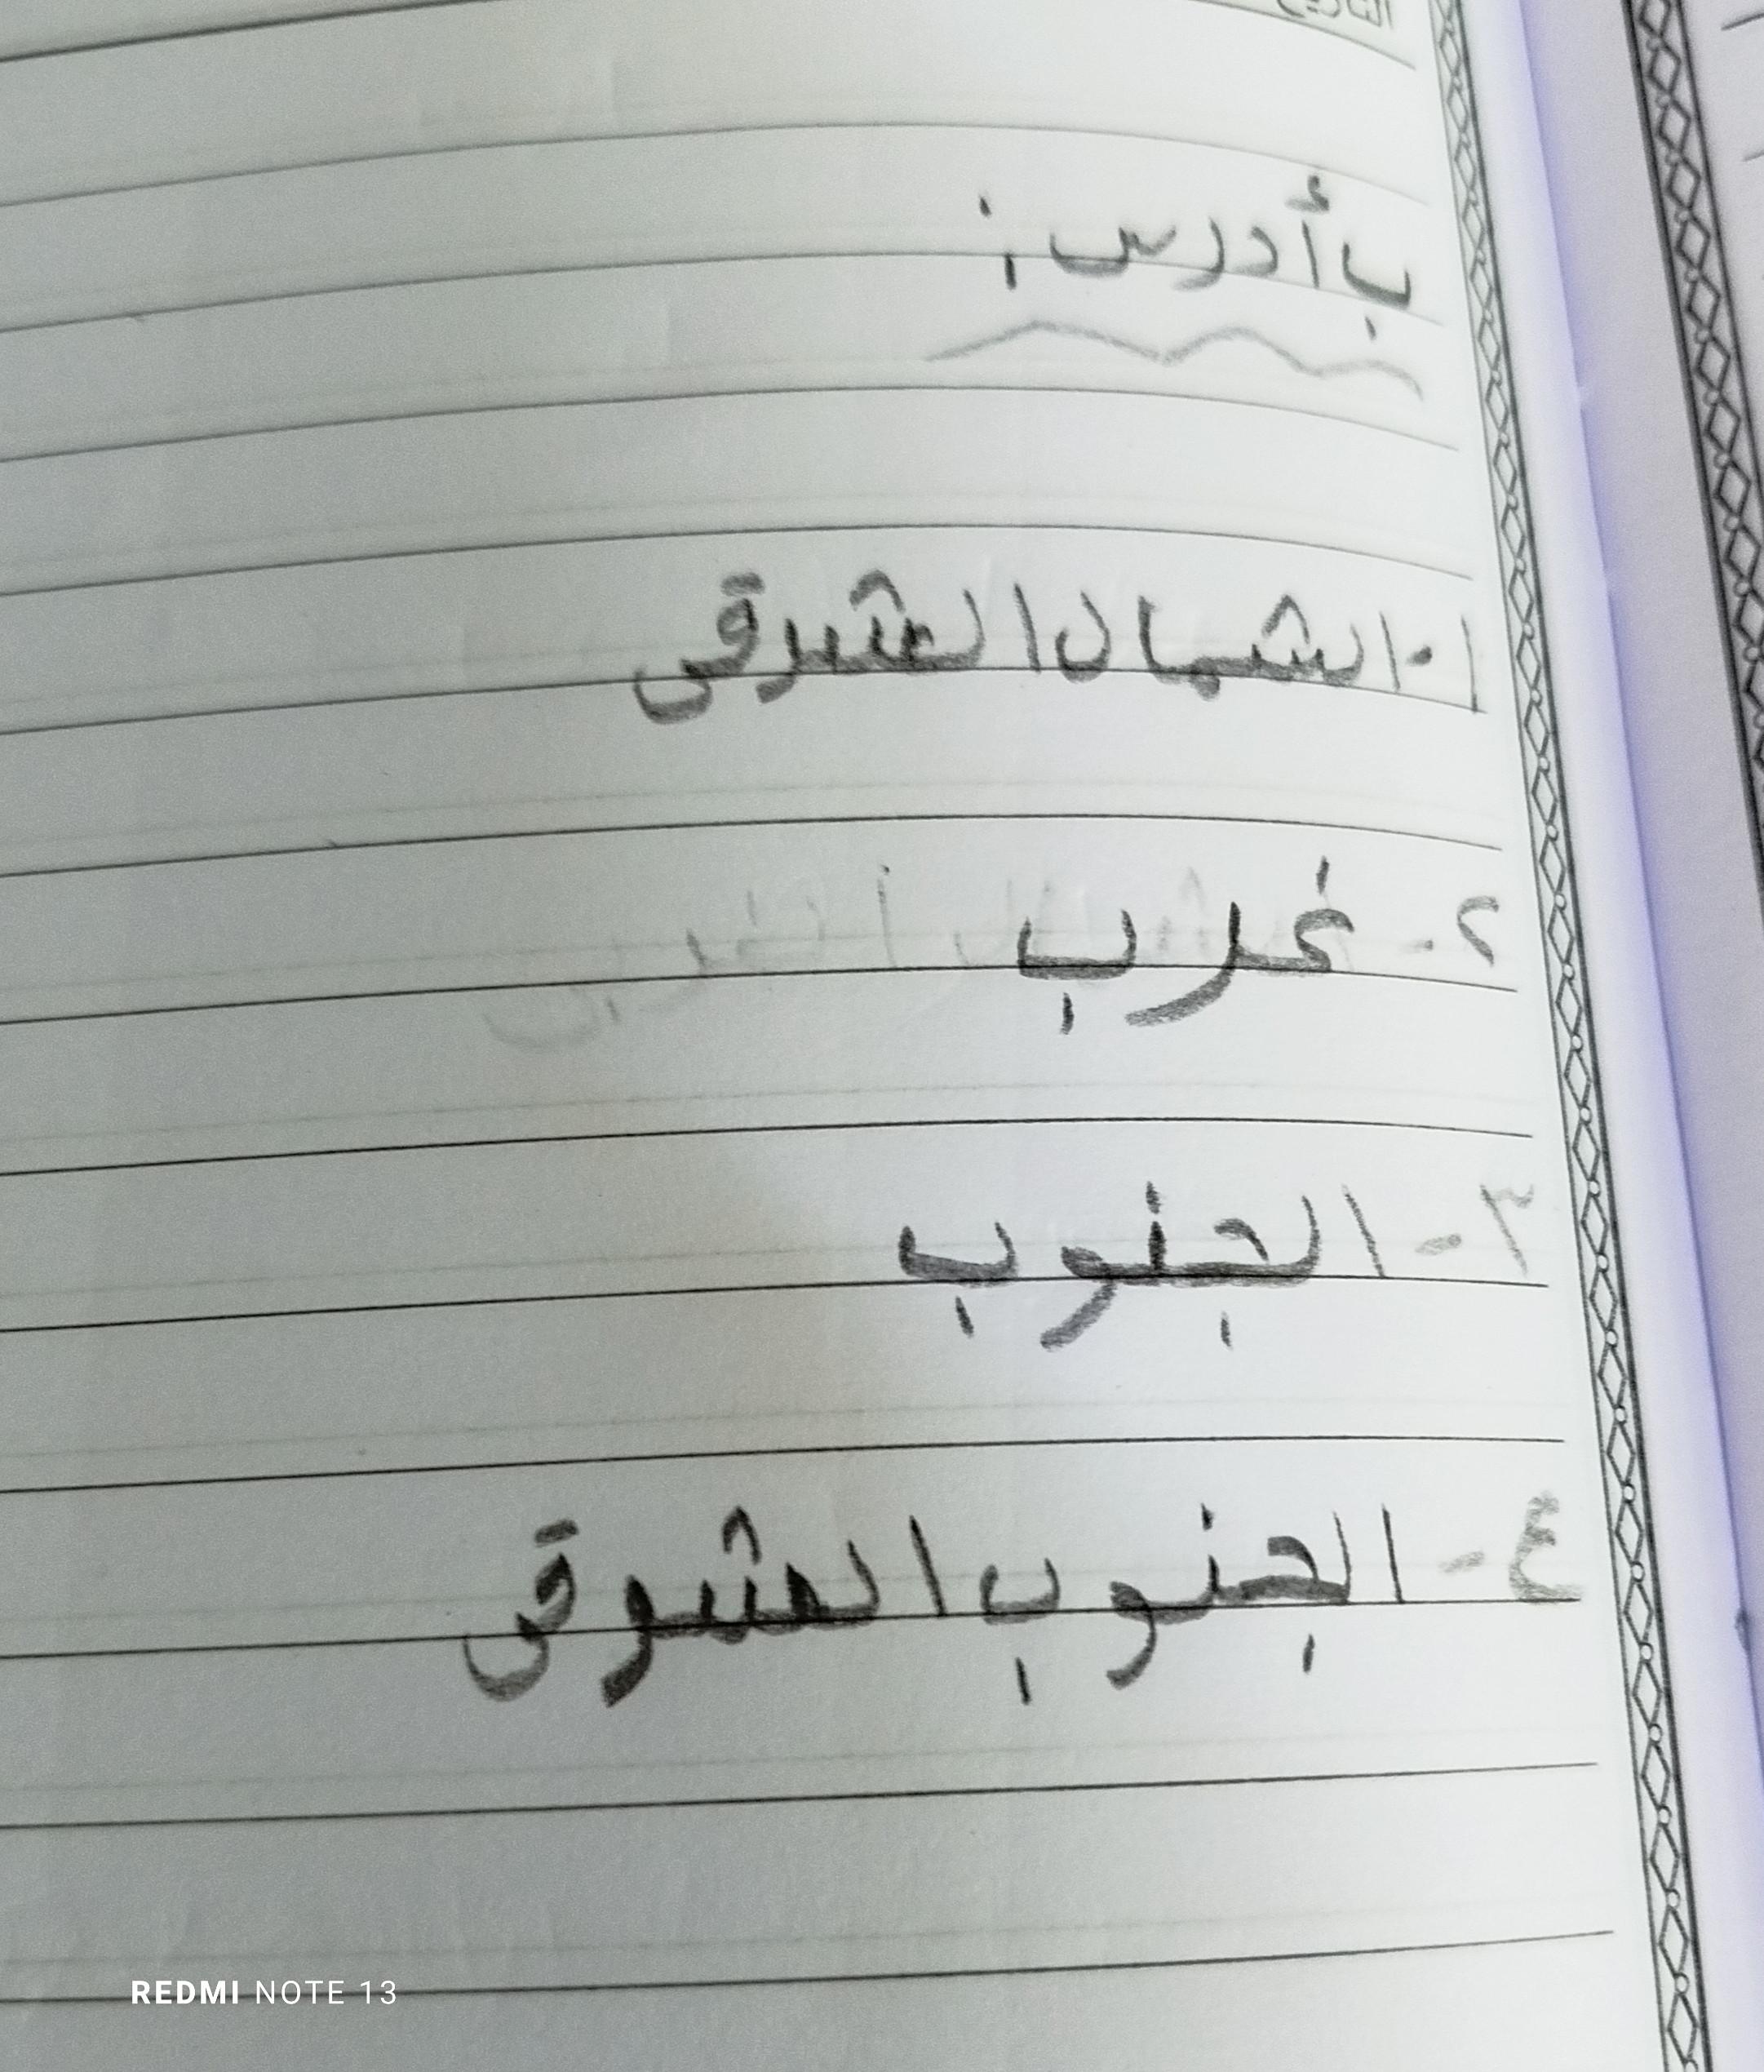 التاريخ
بأدرس :
١- الشمال الشرقى
٢- غرب
٣- الجنوب
٤- الجنوب الشرقى
REDMI NOTE 13